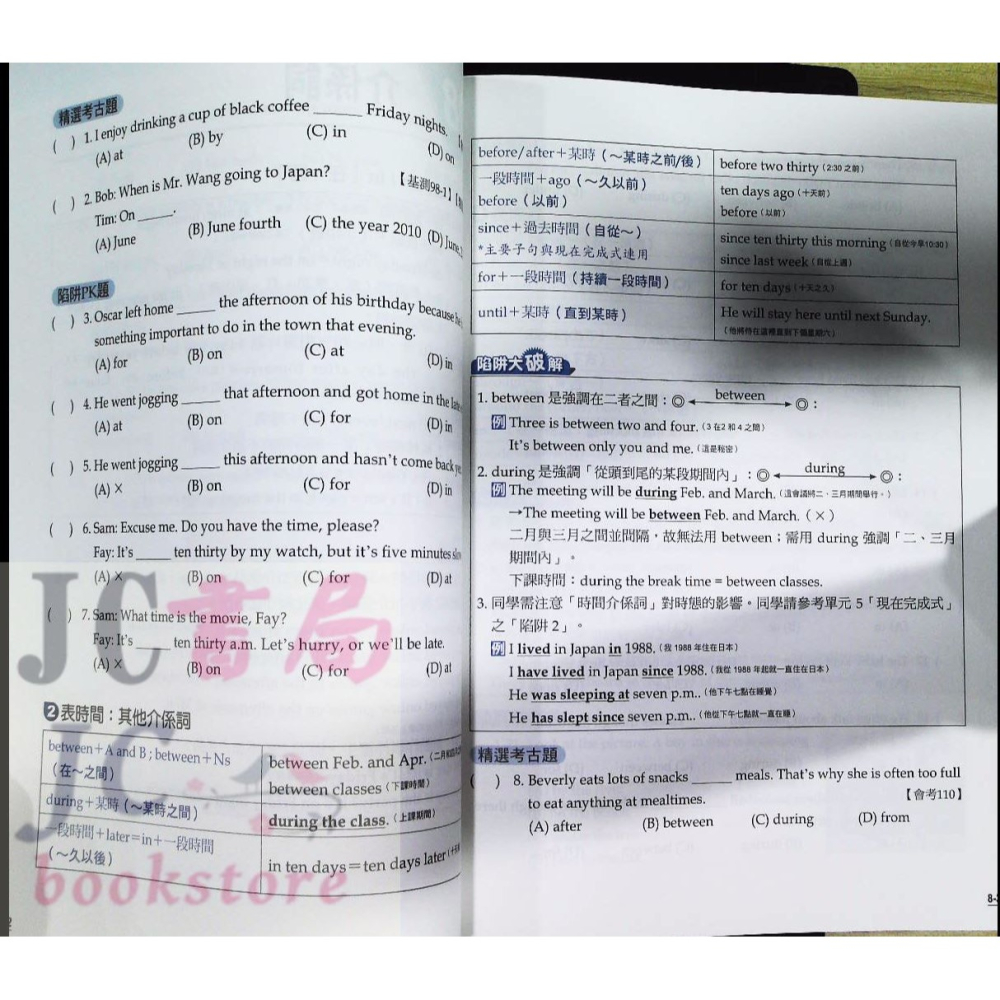 精選考古題
(   ) 1. I enjoy drinking a cup of black coffee ______ Friday nights.
(A) at (B) by (C) in (D) on
【基測98-1】
(   ) 2. Bob: When is Mr. Wang going to Japan?
Tim: On _____.
(A) June (B) June fourth (C) the year 2010 (D) June
陷阱PK題
(   ) 3. Oscar left home _____ the afternoon of his birthday because
something important to do in the town that evening.
(A) for (B) on (C) at (D) in
(   ) 4. He went jogging _____ that afternoon and got home in the
(A) at (B) on (C) for (D) in
(   ) 5. He went jogging _____ this afternoon and hasn't come back
(A) × (B) on (C) for (D) in
(   ) 6. Sam: Excuse me. Do you have the time, please?
Fay: It's _____ ten thirty by my watch, but it's five minutes
(A) × (B) on (C) for (D) at
(   ) 7. Sam: What time is the movie, Fay?
Fay: It's _____ ten thirty a.m. Let's hurry, or we'll be late.
(A) × (B) on (C) for (D) at
❷表時間：其他介係詞
between＋A and B ; between＋Ns
（在～之間）
between Feb. and Apr.
between classes（下課時間）
during＋某時（～某時之間）
during the class.（上課期間）
一段時間＋later＝in＋一段時間
（～久以後）
in ten days＝ten days later
before/after＋某時（～某時之前/後）
before two thirty（2:30 之前）
一段時間＋ago（～久以前）
before（以前）
ten days ago（十天前）
before（以前）
since＋過去時間（自從～）
*主要子句與現在完成式連用
since ten thirty this morning（自從今早10:30）
since last week（自從上週）
for＋一段時間（持續一段時間）
for ten days（十天之久）
until＋某時（直到某時）
He will stay here until next Sunday.
（他將待在這裡直到下個星期六）
陷阱大破解
1. between 是強調在二者之間：◎ between ◎：
例 Three is between two and four.（3 在2 和 4 之間）
It's between only you and me.（這是秘密）
2. during 是強調「從頭到尾的某段期間內」：◎ during ◎：
例 The meeting will be during Feb. and March.（這會議將二、三月期間舉行。）
→The meeting will be between Feb. and March.（×）
二月與三月之間並間隔，故無法用 between；需用 during 強調「二、三月
期間內」。
下課時間：during the break time = between classes.
3. 同學需注意「時間介係詞」對時態的影響。同學請參考單元 5「現在完成式」
之「陷阱 2」。
例 I lived in Japan in 1988.（我 1988 年住在日本）
I have lived in Japan since 1988.（我從 1988 年起就一直住在日本）
He was sleeping at seven p.m..（他下午七點在睡覺）
He has slept since seven p.m..（他從下午七點就一直在睡）
精選考古題
(   ) 8. Beverly eats lots of snacks _____ meals. That's why she is often too full
to eat anything at mealtimes.
【會考110】
(A) after (B) between (C) during (D) from
JC書局
JC
bookstore